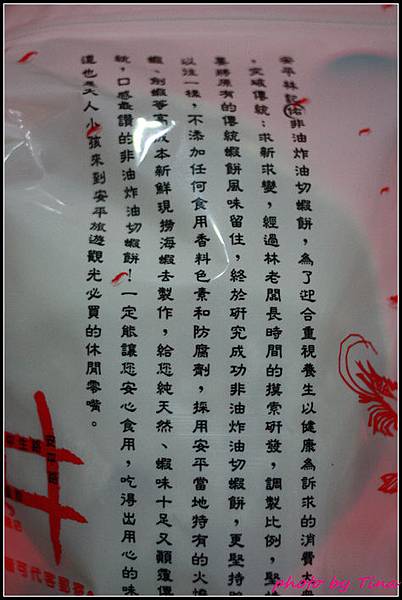 安平林記佑非油炸油切蝦餅，為了迎合重視養生以健康為訴求的消費大眾
，突破傳統：求新求變，經過林老闆長時間的摸索研發，調製比例，堅
將原有的傳統蝦餅風味留住，終於研究成功非油炸油切蝦餅，更堅持
以往一樣，不添加任何食用香料色素和防腐劑，採用安平當地特有的火燒
蝦、劍蝦等高成本新鮮現撈海蝦去製作，給您純天然、蝦味十足又顛覆傳
統，口感最讚的非油炸油切蝦餅！一定能讓您安心食用，吃得出用心的味
道也是大人小孩來到安平旅遊觀光必買的休閒零嘴。
photo by Tina